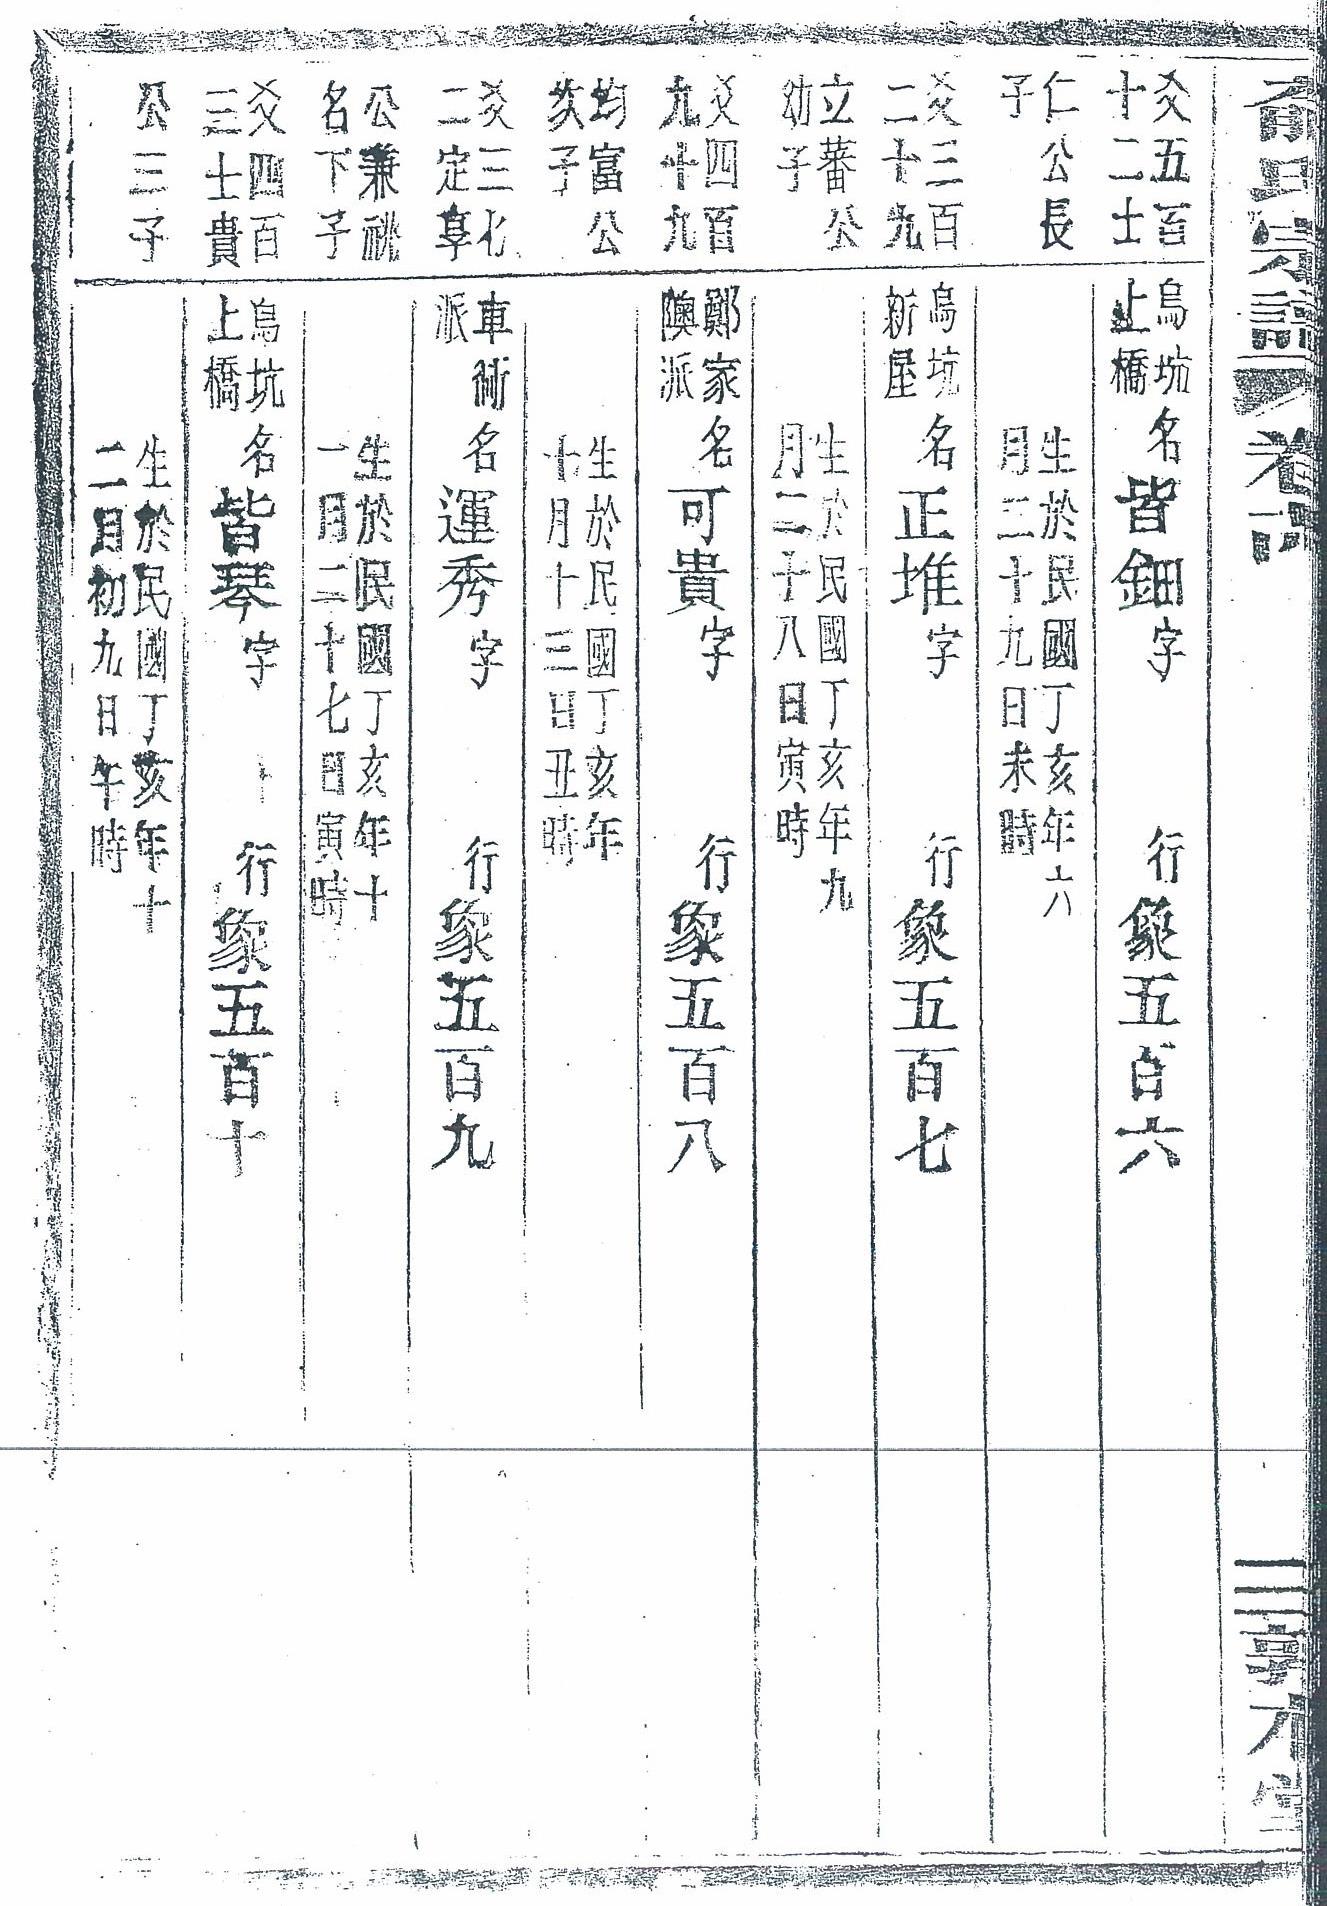 氏宗譜 卷六
爻五百
十二士
仁公長
子
烏坑
上橋
名皆鈿字 行象五百六
生於民國丁亥年六
月二十九日未時
爻三百
二十九
立蕃公
幼子
烏坑
新屋
名正堆字 行象五百七
生於民國丁亥年九
月二十八日寅時
爻四百
九十九
均富公
次子
鄭家
隩派
名可貴字 行象五百八
生於民國丁亥年
十月十三日丑時
爻三七
二定享
公兼祧
名下子
車衕
派
名運秀字 行象五百九
生於民國丁亥年十
一月二十七日寅時
爻四百
三士貴
公三子
烏坑
上橋
名皆琴字 行象五百十
生於民國丁亥年十
二月初九日午時